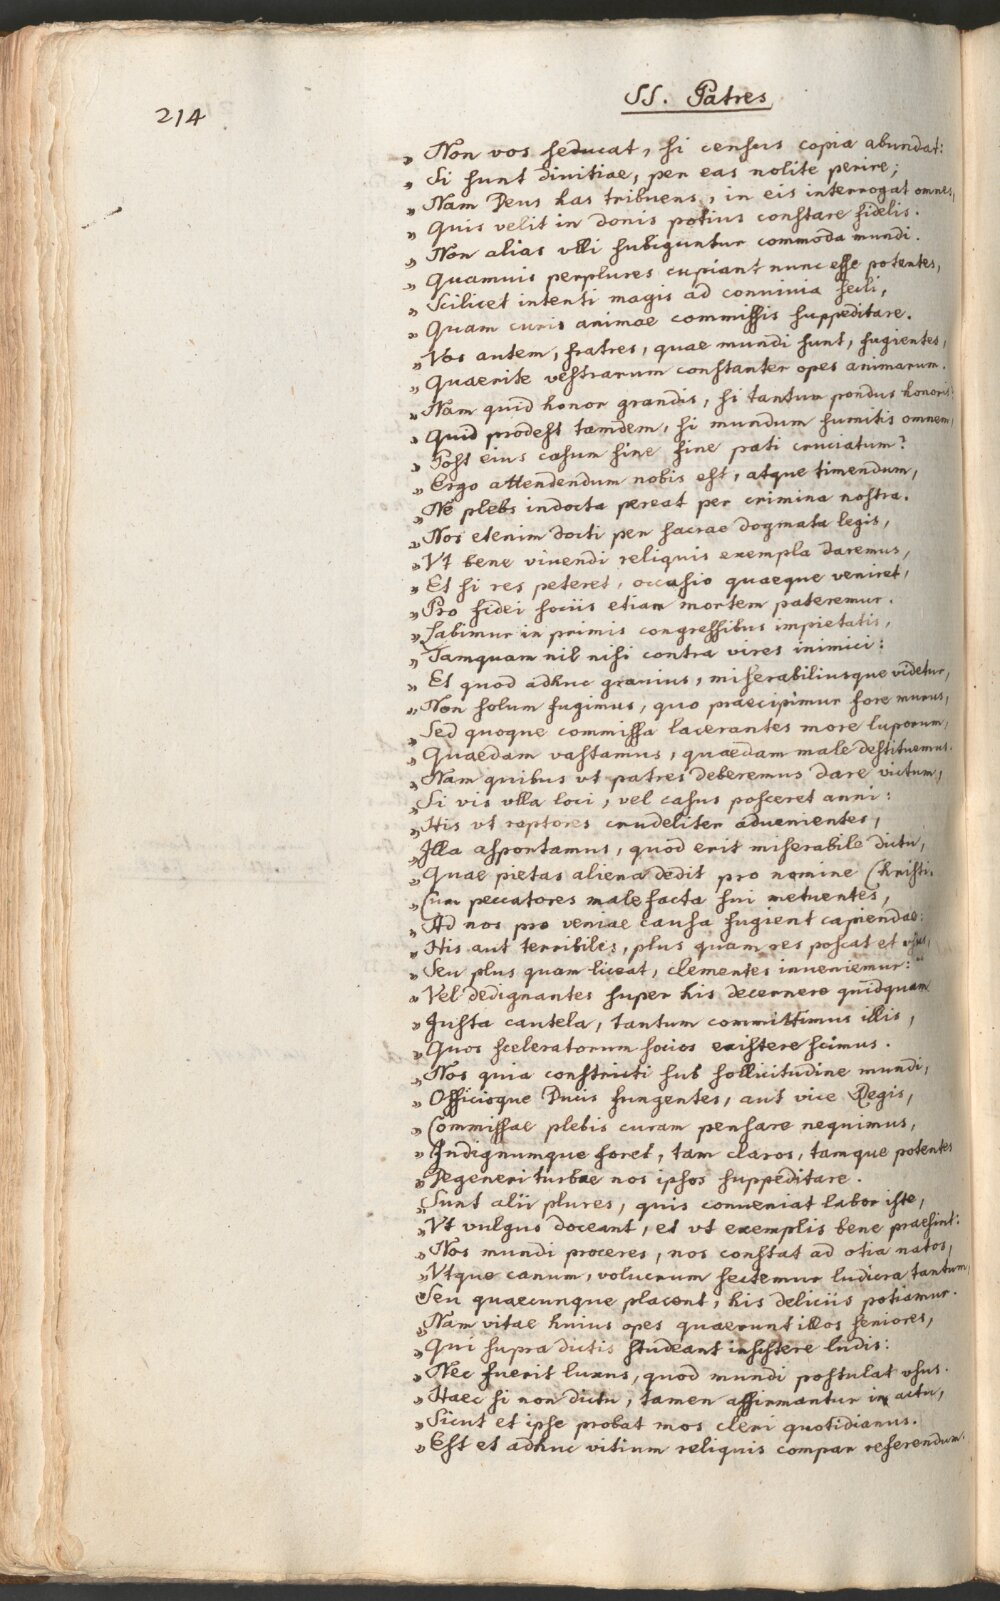 214
SS. Patres
„ Non vos seducat, si census copia abundat:
„ Si sunt divitiae, per eas nolite perire;
„ Nam Deus has tribuens, in eis interrogat omnes,
„ Quis velit in donis potius constare fidelis.
„ Non alias ulli subiguntur commoda mundi.
„ Quamuis perplures cupiant nunc esse potentes,
„ Scilicet intenti magis ad conuinia secli,
„ Quam curis animae commissis suppeditare.
„ Vos autem, fratres, quae mundi sunt, fugientes,
„ Quaerite vestrarum constanter opes animarum.
„ Nam quid honor grandis, si tantum pondus honoris?
„ Quid prodest tamdem, si mundum sumitis omnem,
„ Post eius casum sine fine pati cruciatum?
„ Ergo attendendum nobis est, atque timendum,
„ Ne plebs indocta pereat per crimina nostra.
„ Nos etenim docti per sacrae dogmata legis,
„ Vt bene viuendi reliquis exempla daremus,
„ Et si res peteret, occasio quaeque veniret,
„ Pro fidei sociis etiam mortem pateremur.
„ Labimur in primis congressibus impietatis,
„ Tamquam nil nisi contra vires inimici:
„ Et quod adhuc grauius, miserabiliusque videtur,
„ Non solum fugimus, quo praecipimur fore murus,
„ Sed quoque commissa lacerantes more luporum,
„ Quaedam vastamus, quaedam male destituemus.
„ Nam quibus vt patres deberemus dare victum,
„ Si vis vlla loci, vel casus posceret anni:
„ His vt raptores crudeliter aduenientes,
„ Illa asportamus, quod erit miserabile dictu,
„ Quae pietas aliena dedit pro nomine Christi.
„ Cum peccatores malefacta sui metuentes,
„ Ad nos pro veniae causa fugient capiendae:
„ His aut terribiles, plus quam res poscat et usus,
„ Seu plus quam liceat, clementes inueniemur:
„ Vel dedignantes super his decernere quidquam
„ Iusta cautela, tantum committimus illis,
„ Quos sceleratorum socios existere scimus.
„ Nos quia constricti sub sollicitudine mundi,
„ Officioque Ducis fungentes, aut vice Regis,
„ Commissae plebis curam pensare nequimus,
„ Indignumque foret, tam claros, tamque potentes
„ Degeneri turbae nos ipsos suppeditare.
„ Sunt alii plures, quis conueniat labor iste,
„ Vt vulgus doceant, et vt exemplis bene praesint:
„ Nos mundi proceres, nos constat ad otia natos,
„ Vtque canum, volucrum sectemur ludicra tantum,
Seu quaecunque placent, his deliciis potiamur.
„ Nam vitae huius opes quaerunt illos seniores,
„ Qui supra dictis studeant insistere ludis:
„ Nec fuerit luxus, quod mundi postulat vsus.
„ Haec si non dictu, tamen affirmantur in actu,
„ Sicut et ipse probat mos cleri quotidianus.
„ Est et adhuc vitium reliquis compar referendum.